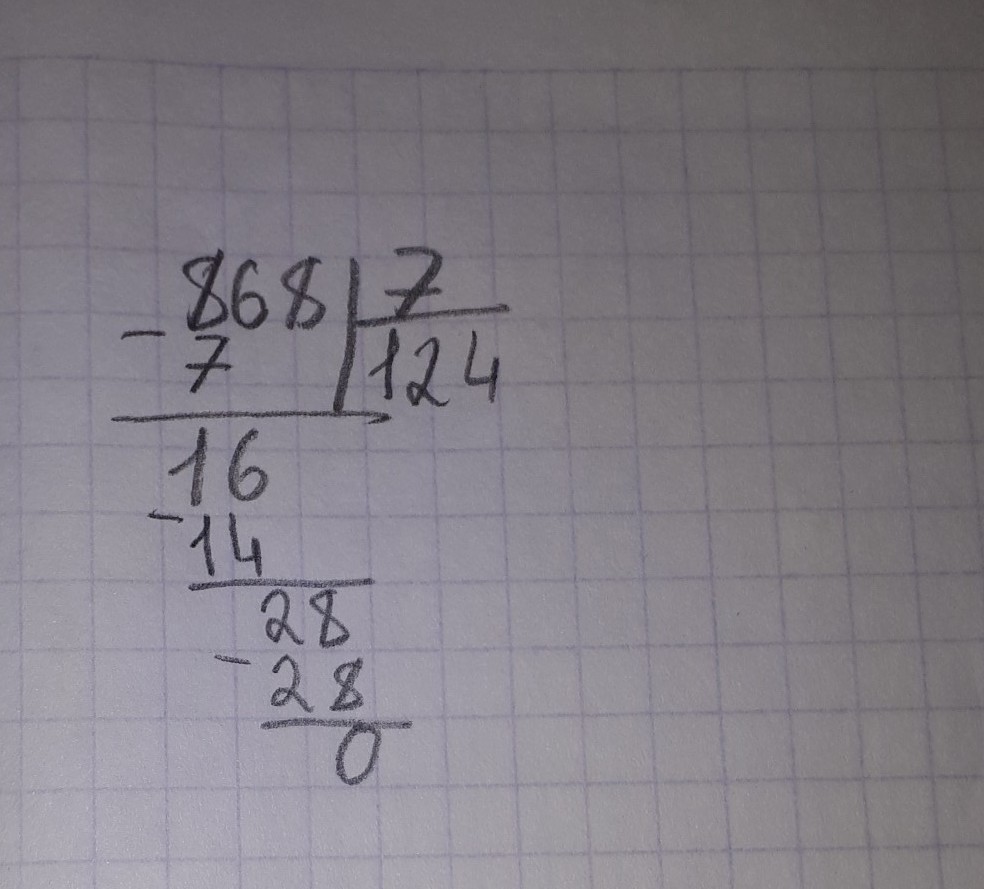 868 | 7
- 7 | 124
16
- 14
28
- 28
0